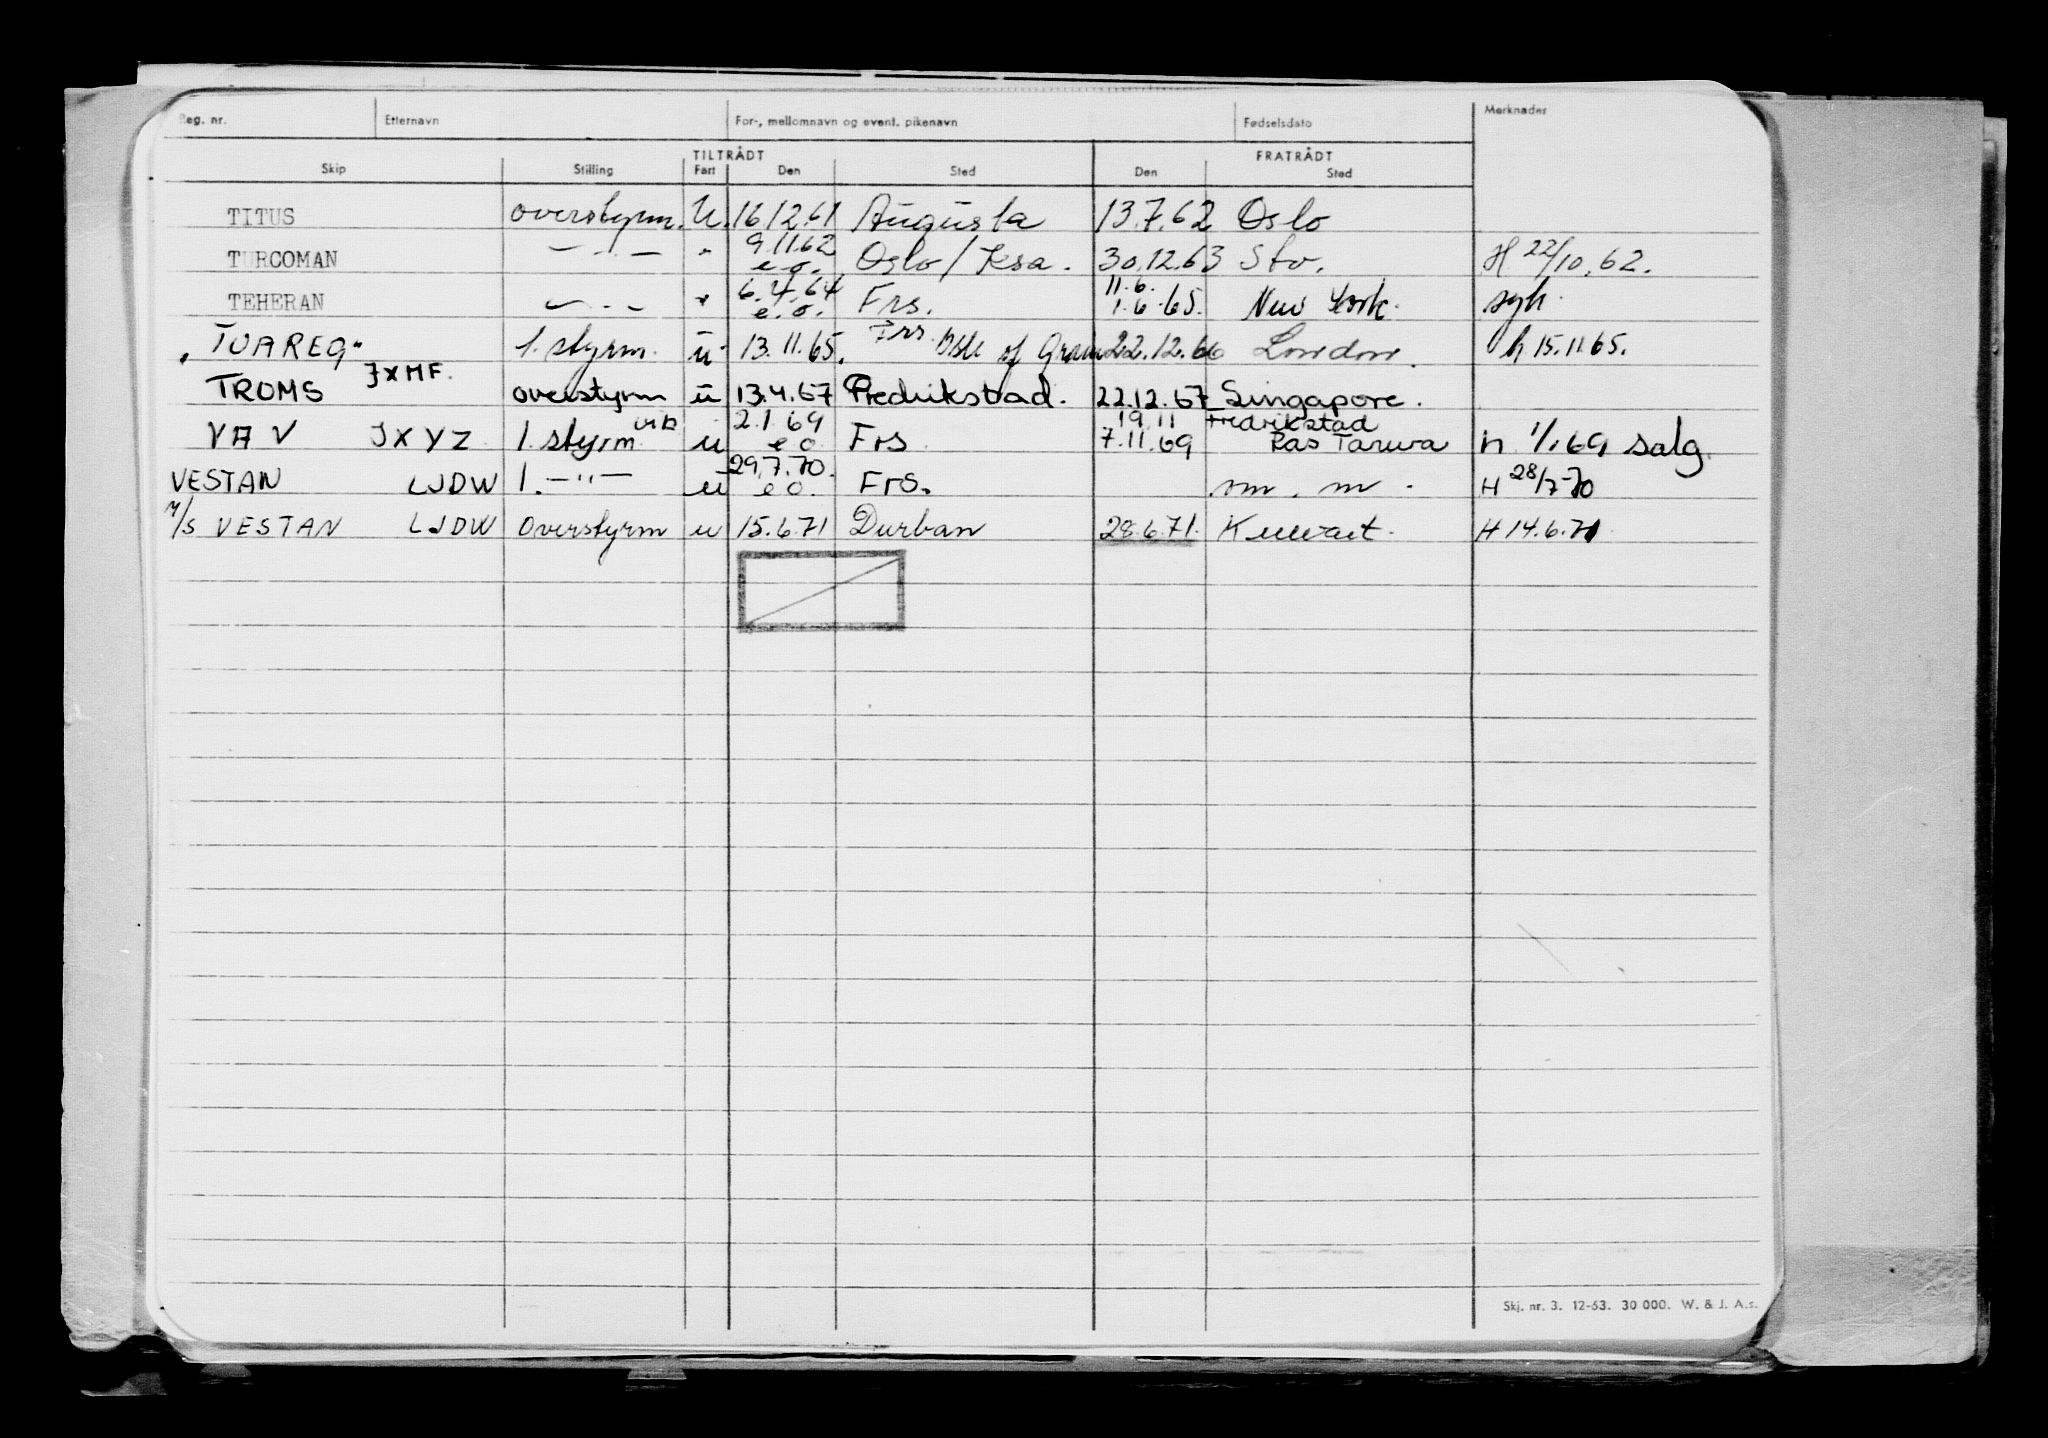 Reg. nr. Etternavn For-, mellomnavn og event. pikenavn Fødselsdato Merknader
TILTRÅDT FRATRÅDT
Skip Stilling Fart Den Sted Den Sted
TITUS overstyrm. U. 16.12.61 Augusta 13.7.62 Oslo
TURCOMAN — " — " 9.11.62 e.o. Oslo / Ksa. 30.12.63 Sto. H 22/10.62.
TEHERAN — " — " 6.4.64 e.o. Frs. 11.6. 1.6.65. New York. syk.
"TUAREG" 1. styrm. u 13.11.65. Frs. Isle of Grain 22.12.66 London. h 15.11.65.
TROMS JXMF. overstyrm u 13.4.67 Fredrikstad. 22.12.67 Singapore.
VAV JXYZ 1. styrm vik u 2.1.69 e o Frs 19.11 7.11.69 Fredrikstad Ras Tanura h 1/1.69 salg.
VESTAN LJDW 1. — " — u 29.7.70. e o. Frs. m. m. H 28/7-70
M/S VESTAN LJDW Overstyrm u 15.6.71 Durban 28.6.71. Kuwait. H 14.6.71
Skj. nr. 3. 12-63. 30 000. W. & J. A.s.